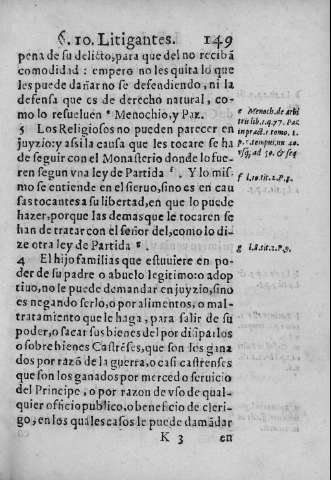 §. 10. Litigantes. 149
pena de su delicto, para que del no recibã
comodidad : empero no les quita lo que
les puede dañar no se defendiendo, ni la
defensa que es de derecho natural, co-
mo lo resueluen e Menochio, y Paz.
e Menoch. de arbi
tris lib. 1. q. 77. Paz
in pract. 1. tomo. 1.
p. 1. tempus, nu 40.
vsq; ad 50. & seq
5 Los Religiosos no pueden parecer en
juyzio; y assi la causa que les tocare se ha
de seguir con el Monasterio donde lo fue-
ren segun vna ley de Partida f . Y lo mis-
f l. 10. tit. 2. P. 3.
mo se entiende en el sieruo, sino es en cau
sas tocantes a su libertad, en que lo puede
hazer, porque las demas que le tocaren se
han de tratar con el señor del, como lo di-
ze otra ley de Partida g .
g l. 8. tit. 2. P. 3.
4 El hijo familias que estuuiere en po-
der de su padre o abuelo legitimo: o adop
tiuo, no le puede demandar en juyzio, sino
es negando serlo, o por alimentos, o mal-
tratamiento que le haga, para salir de su
poder, o sacar sus bienes del por disiparlos
o sobre bienes Castrẽses, que son los gana
dos por razõ de la guerra, o casi castrenses
que son los ganados por merced o seruicio
del Principe, o por razon de vso de qual-
quier officio publico, o beneficio de cleri-
go, en los quales casos le puede damãdar
K 3 en